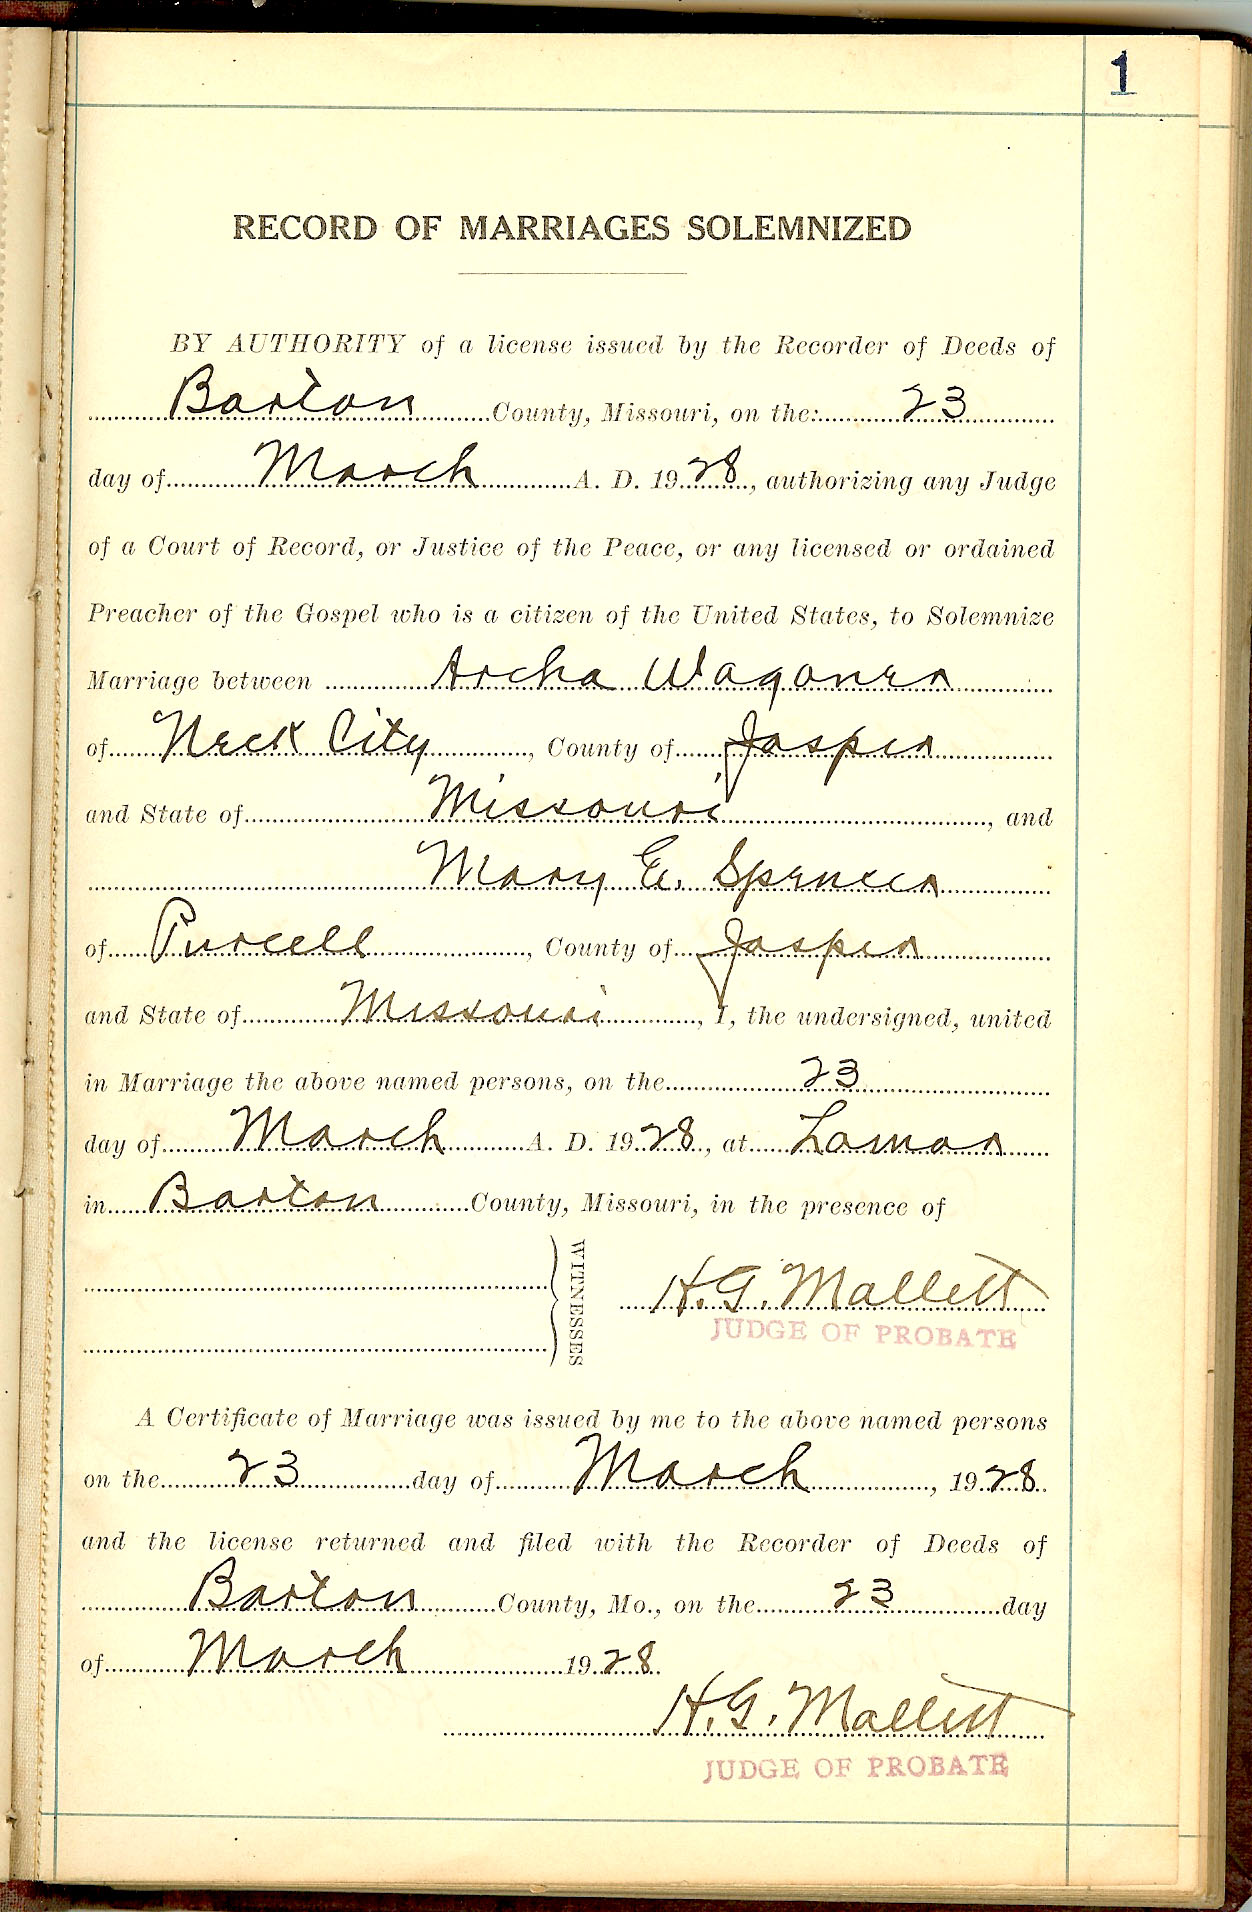 1
RECORD OF MARRIAGES SOLEMNIZED
BY AUTHORITY of a license issued by the Recorder of Deeds of
Barton County, Missouri, on the: 23
day of March A. D. 1928, authorizing any Judge
of a Court of Record, or Justice of the Peace, or any licensed or ordained
Preacher of the Gospel who is a citizen of the United States, to Solemnize
Marriage between Archa Wagoner
of Neck City, County of Jasper
and State of Missouri, and
Mary E. Spencer
of Purcell, County of Jasper
and State of Missouri, I, the undersigned, united
in Marriage the above named persons, on the 23
day of March A. D. 1928, at Lamar
in Barton County, Missouri, in the presence of
WITNESSES
H. G. Mallett
JUDGE OF PROBATE
A Certificate of Marriage was issued by me to the above named persons
on the 23 day of March, 1928
and the license returned and filed with the Recorder of Deeds of
Barton County, Mo., on the 23 day
of March 1928.
H. G. Mallett
JUDGE OF PROBATE